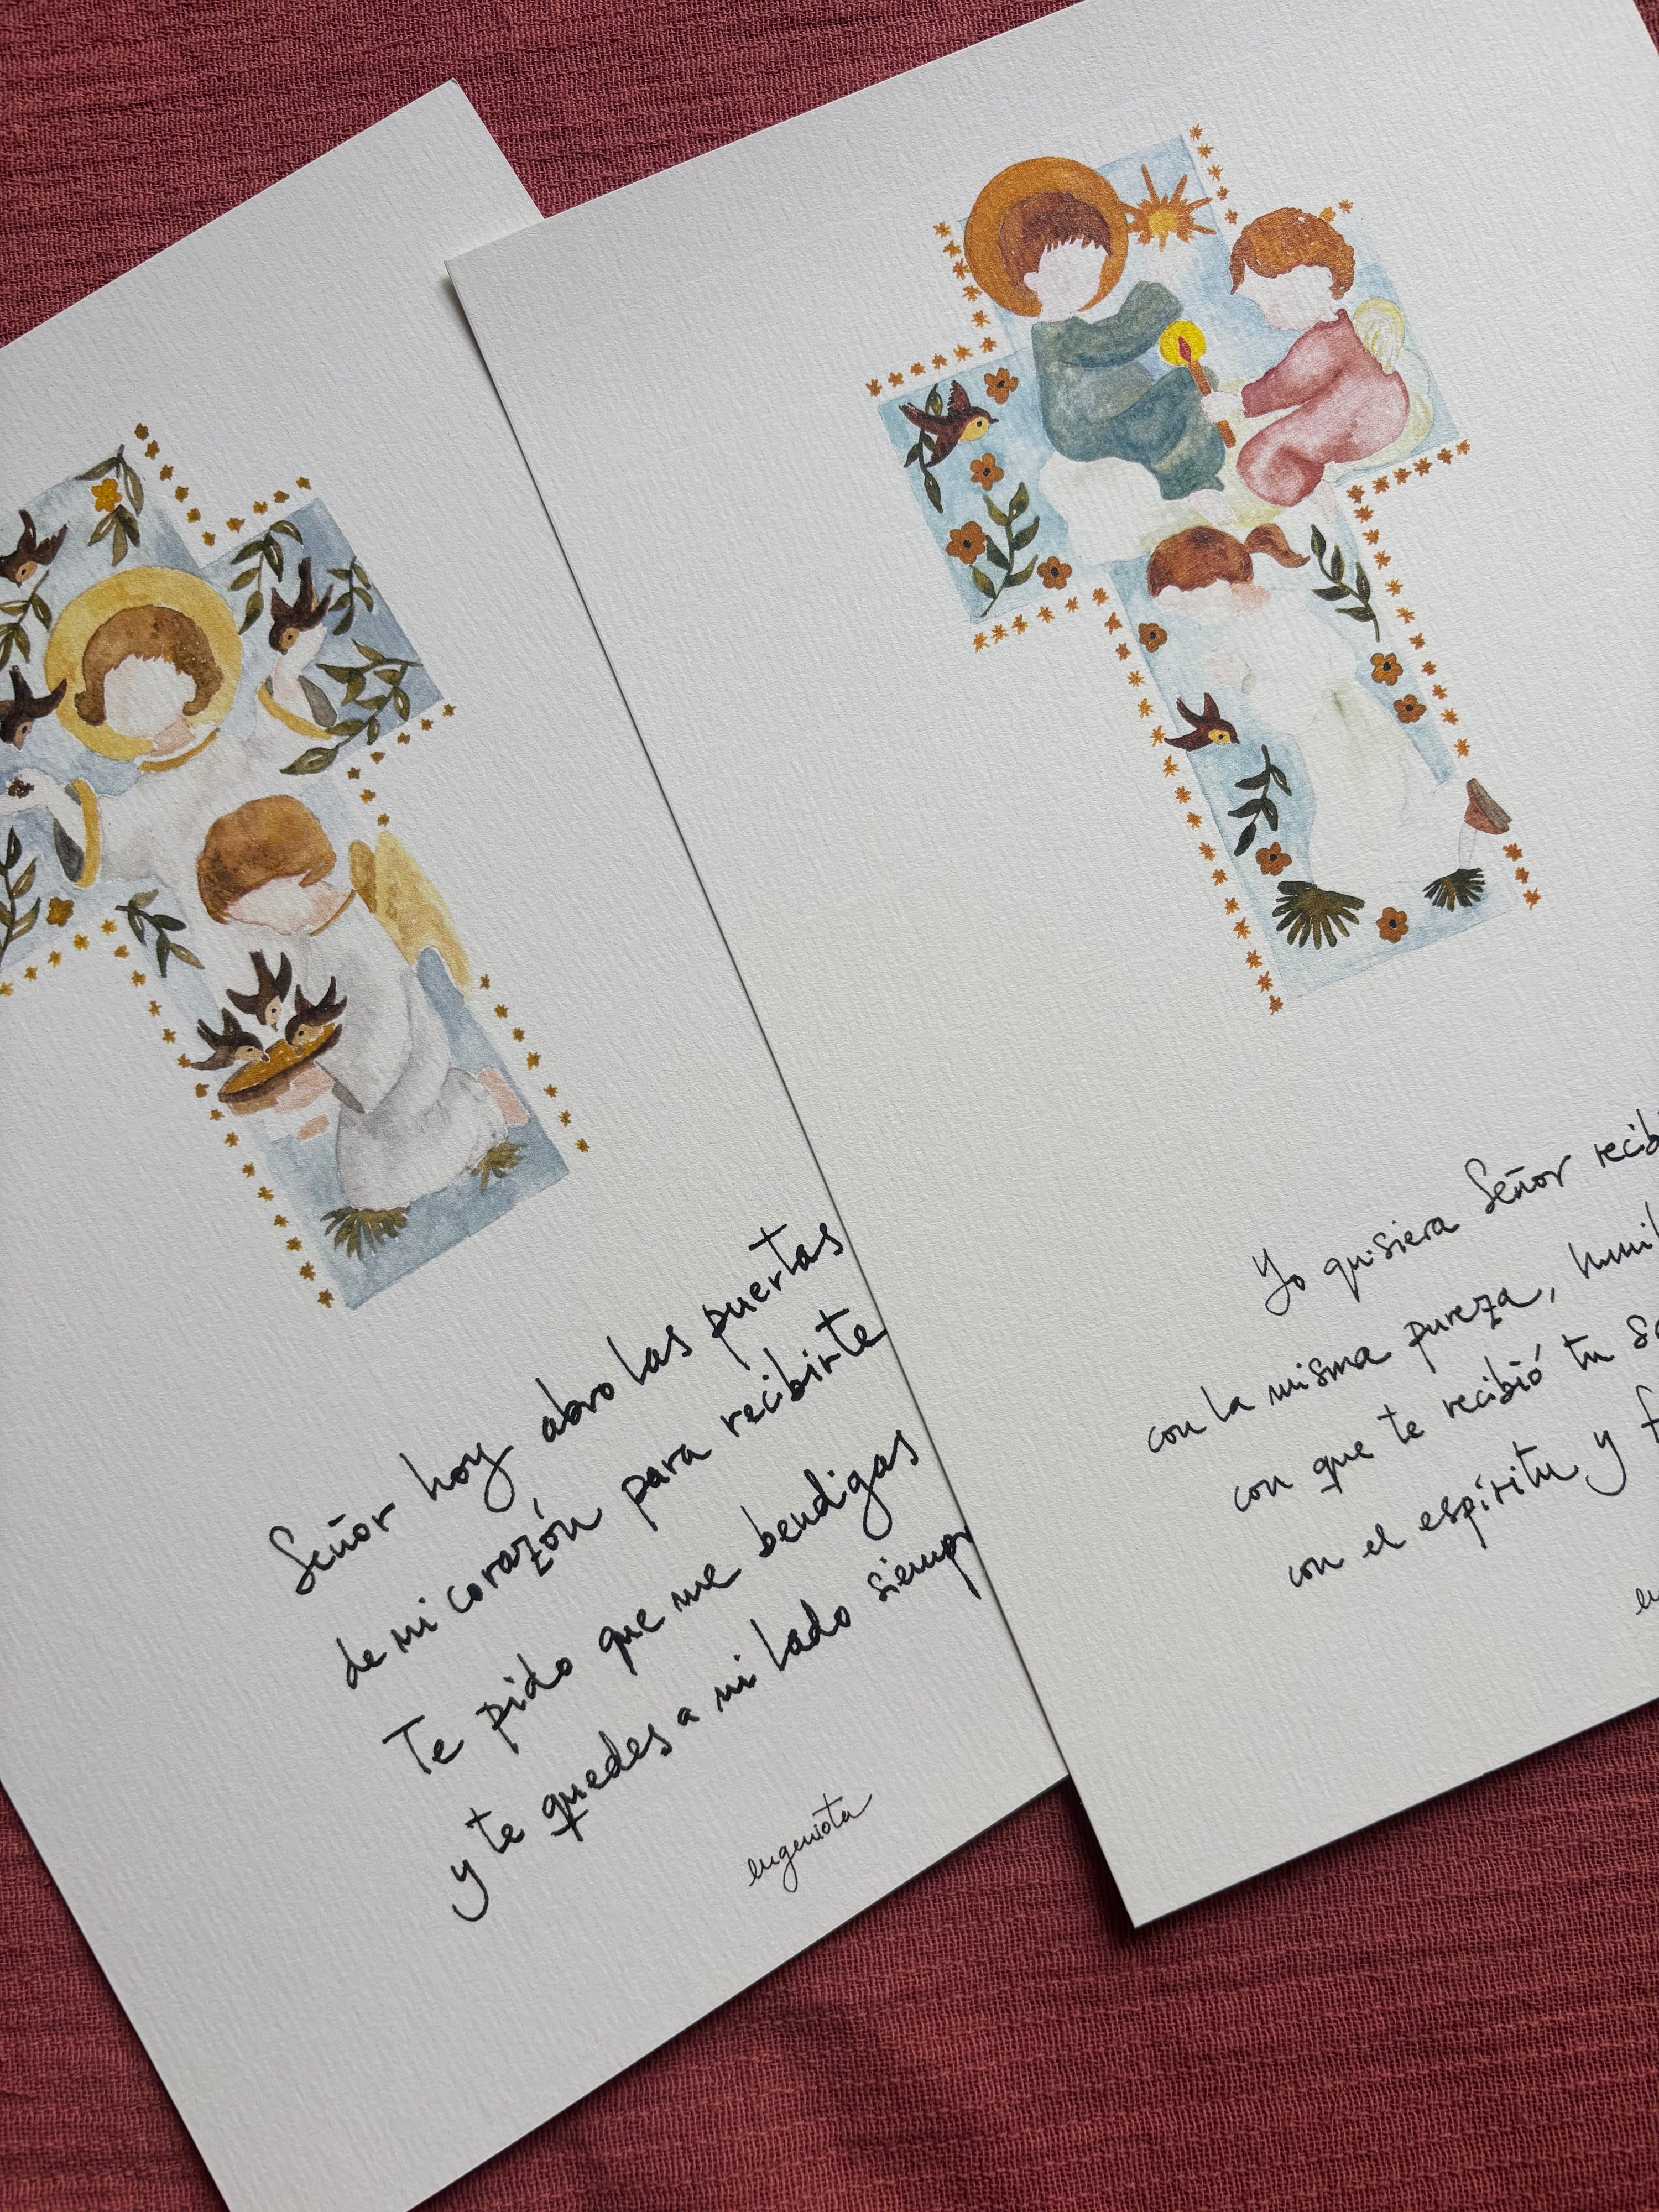 Señor hoy abro las puertas
de mi corazón para recibirte
Te pido que me bendigas
y te quedes a mi lado siempr
eugeniota
Yo quisiera Señor recib
con la misma pureza, humil
con que te recibió tu Sa
con el espíritu y f